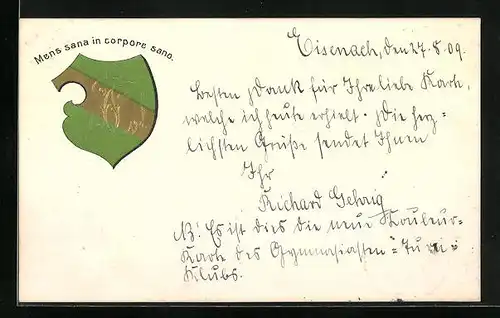 Mens sana in corpore sano.
Eisenach, den 27.8.09.
Besten Dank für Ihre liebe Karte,
welche ich heute erhielt. Die herz-
lichsten Grüße sendet Ihnen
Ihr
Richard Gehrig
NB! Es ist dies die neue Kouleur-
Karte des Gymnasiasten-Turn-
Klubs.